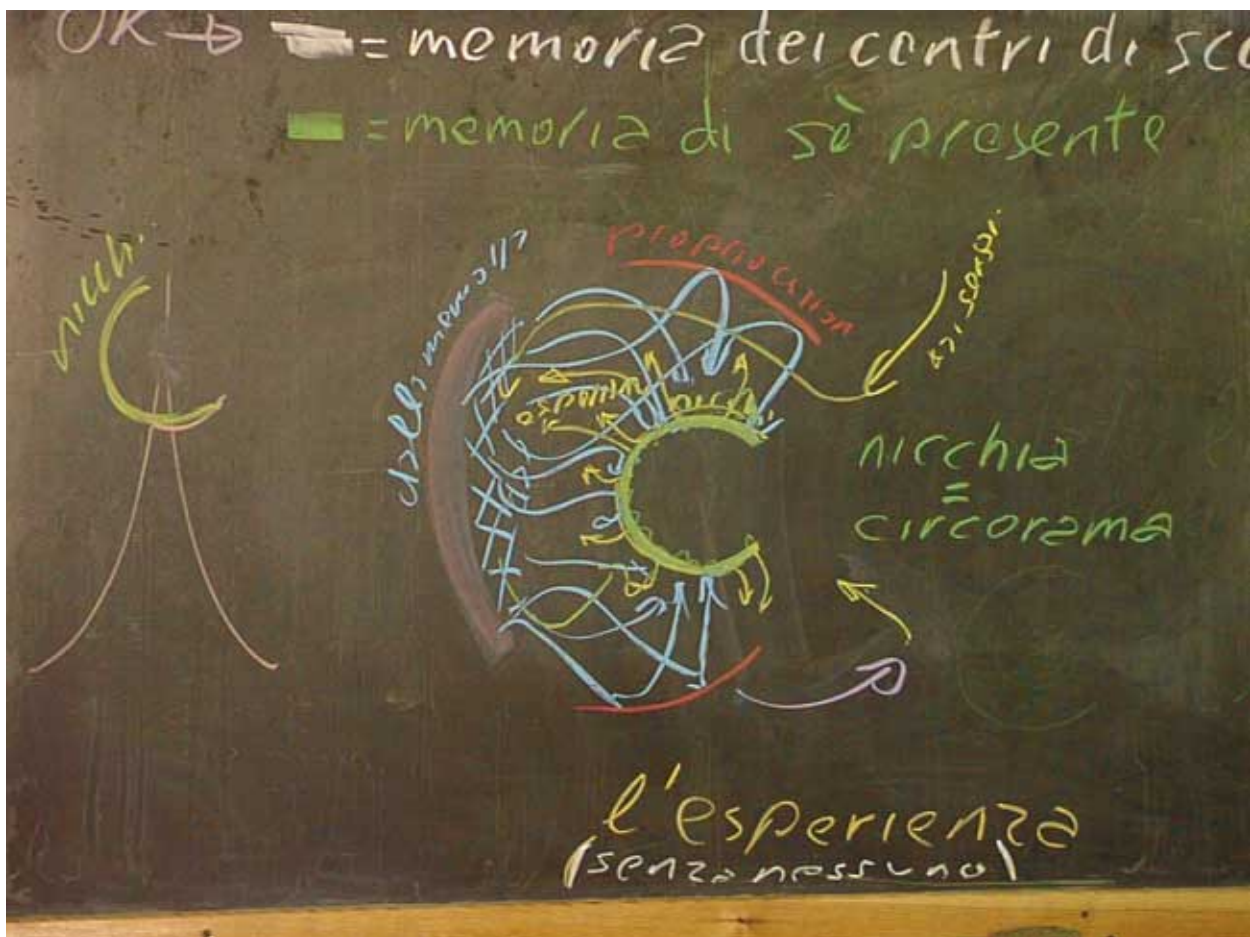 OK → = memoria dei centri di sco
= memoria di sè presente
nicchi.
dalla memoria
propriocezion
esperienza
nicchi
nicchia
=
circorama
l'esperienza
(senza nessuno)